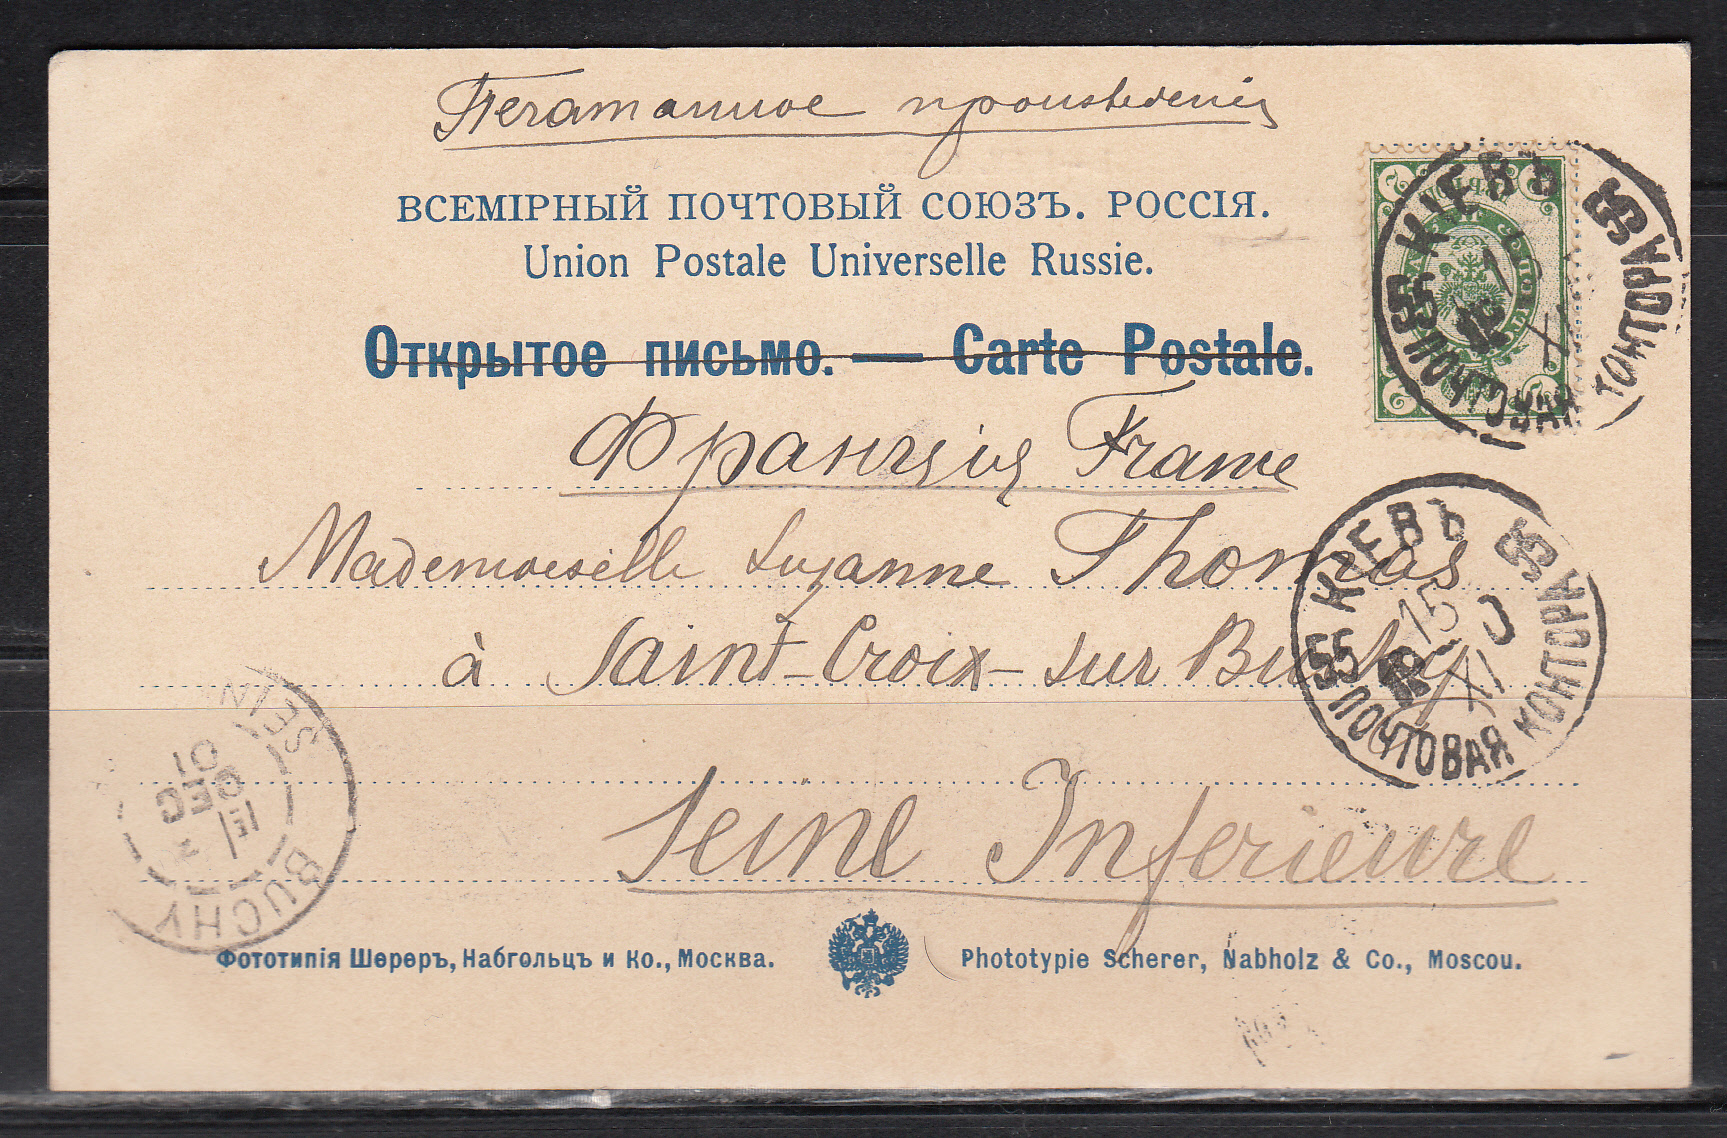 Печатанное произведенія
ВСЕМІРНЫЙ ПОЧТОВЫЙ СОЮЗЪ. РОССІЯ.
Union Postale Universelle Russie.
Открытое письмо. — Carte Postale.
Франція France
Mademoiselle Suzanne Thomas
à Saint-Croix-sur Buchy
Seine Inferieure
КІЕВЪ 55
55 ПОЧТОВАЯ КОНТОРА
КІЕВЪ 55
15 XI
55 ПОЧТОВАЯ КОНТОРА
BUCHY
DEC
01
Фототипія Шереръ, Набгольцъ и Ко., Москва.
Phototypie Scherer, Nabholz & Co., Moscou.